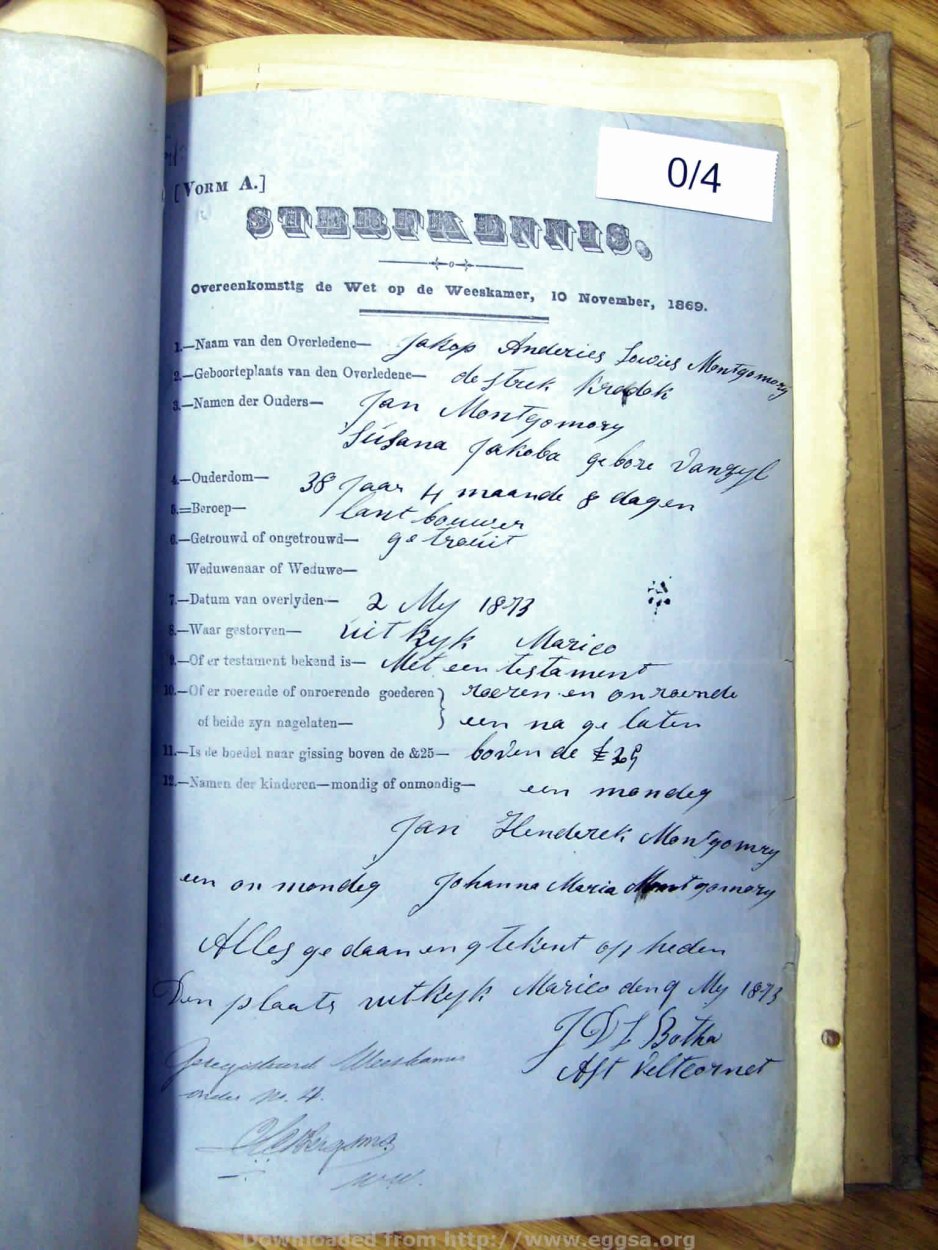 0/4
[VORM A.]
STERFKENNIS.
Overeenkomstig de Wet op de Weeskamer, 10 November, 1869.
1.—Naam van den Overledene— Jakop Anderies Lowies Montgomory
2.—Geboorteplaats van den Overledene— de streek
3.—Namen der Ouders— Jan Montgomory
Susana Jakoba gebore Vanzyl
4.—Ouderdom— 38 Jaar 4 maande 8 dagen
5.—Beroep— lant bouwer
6.—Getrouwd of ongetrouwd— getrouit
Weduwenaar of Weduwe—
7.—Datum van overlyden— 2 My 1873
8.—Waar gestorven— uitkyk Marico
9.—Of er testament bekend is— Met een testament
10.—Of er roerende of onroerende goederen } roeren en onroerende
of beide zyn nagelaten— een na ge laten
11.—Is de boedel naar gissing boven de £25— boven de £
12.—Namen der kinderen—mondig of onmondig— een mondeg
Jan Henderek Montgomry
een on mondeg Johanna Maria Montgomory
Alles gedaan en gtekent op heden
Den plaats uitkyk Marico den 9 My 1873
J D L Botha
Aft Veltcornet
Geregistreerd Weeskamer
onder No. 4.
Downloaded from http://www.eggsa.org